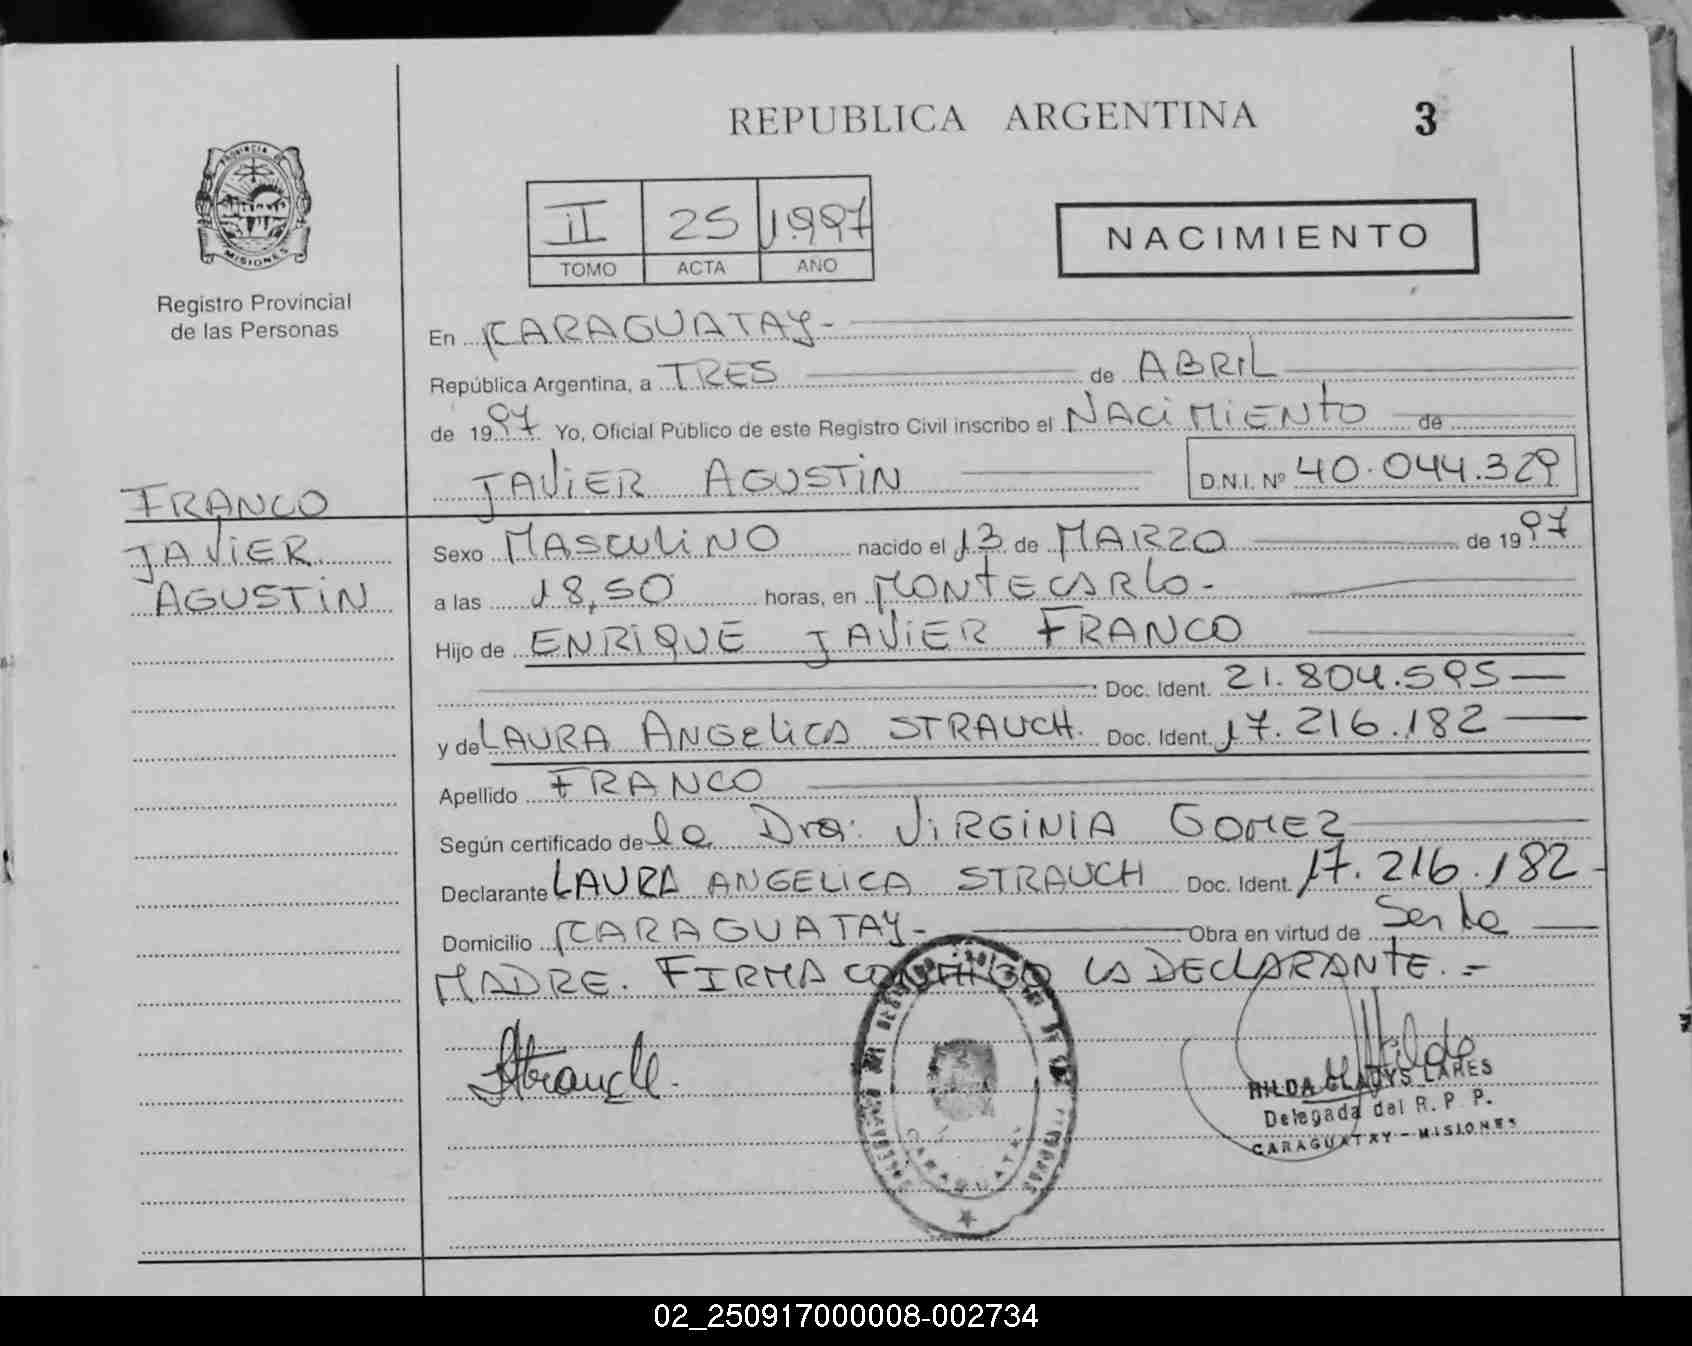 REPUBLICA ARGENTINA 3
PROVINCIA DE
MISIONES
Registro Provincial
de las Personas
II 25 1997
TOMO ACTA AÑO
NACIMIENTO
En CARAGUATAY-
República Argentina, a TRES de ABRIL
de 1997 Yo, Oficial Público de este Registro Civil inscribo el NACIMIENTO de
JAVIER AGUSTIN D.N.I. Nº 40.044.329
FRANCO
JAVIER
AGUSTIN
Sexo MASCULINO nacido el 13 de MARZO de 1997
a las 18,50 horas, en MONTECARLO-
Hijo de ENRIQUE JAVIER FRANCO
Doc. Ident. 21.804.595
y de LAURA ANGELICA STRAUCH. Doc. Ident. 17.216.182
Apellido FRANCO
Según certificado de la Dra. VIRGINIA GOMEZ
Declarante LAURA ANGELICA STRAUCH Doc. Ident. 17.216.182
Domicilio CARAGUATAY- Obra en virtud de Ser la
MADRE. FIRMA CONMIGO LA DECLARANTE.=
Strauch.
CARAGUATAY
HILDA GLADYS LARES
Delegada del R. P. P.
CARAGUATAY - MISIONES
02_250917000008-002734